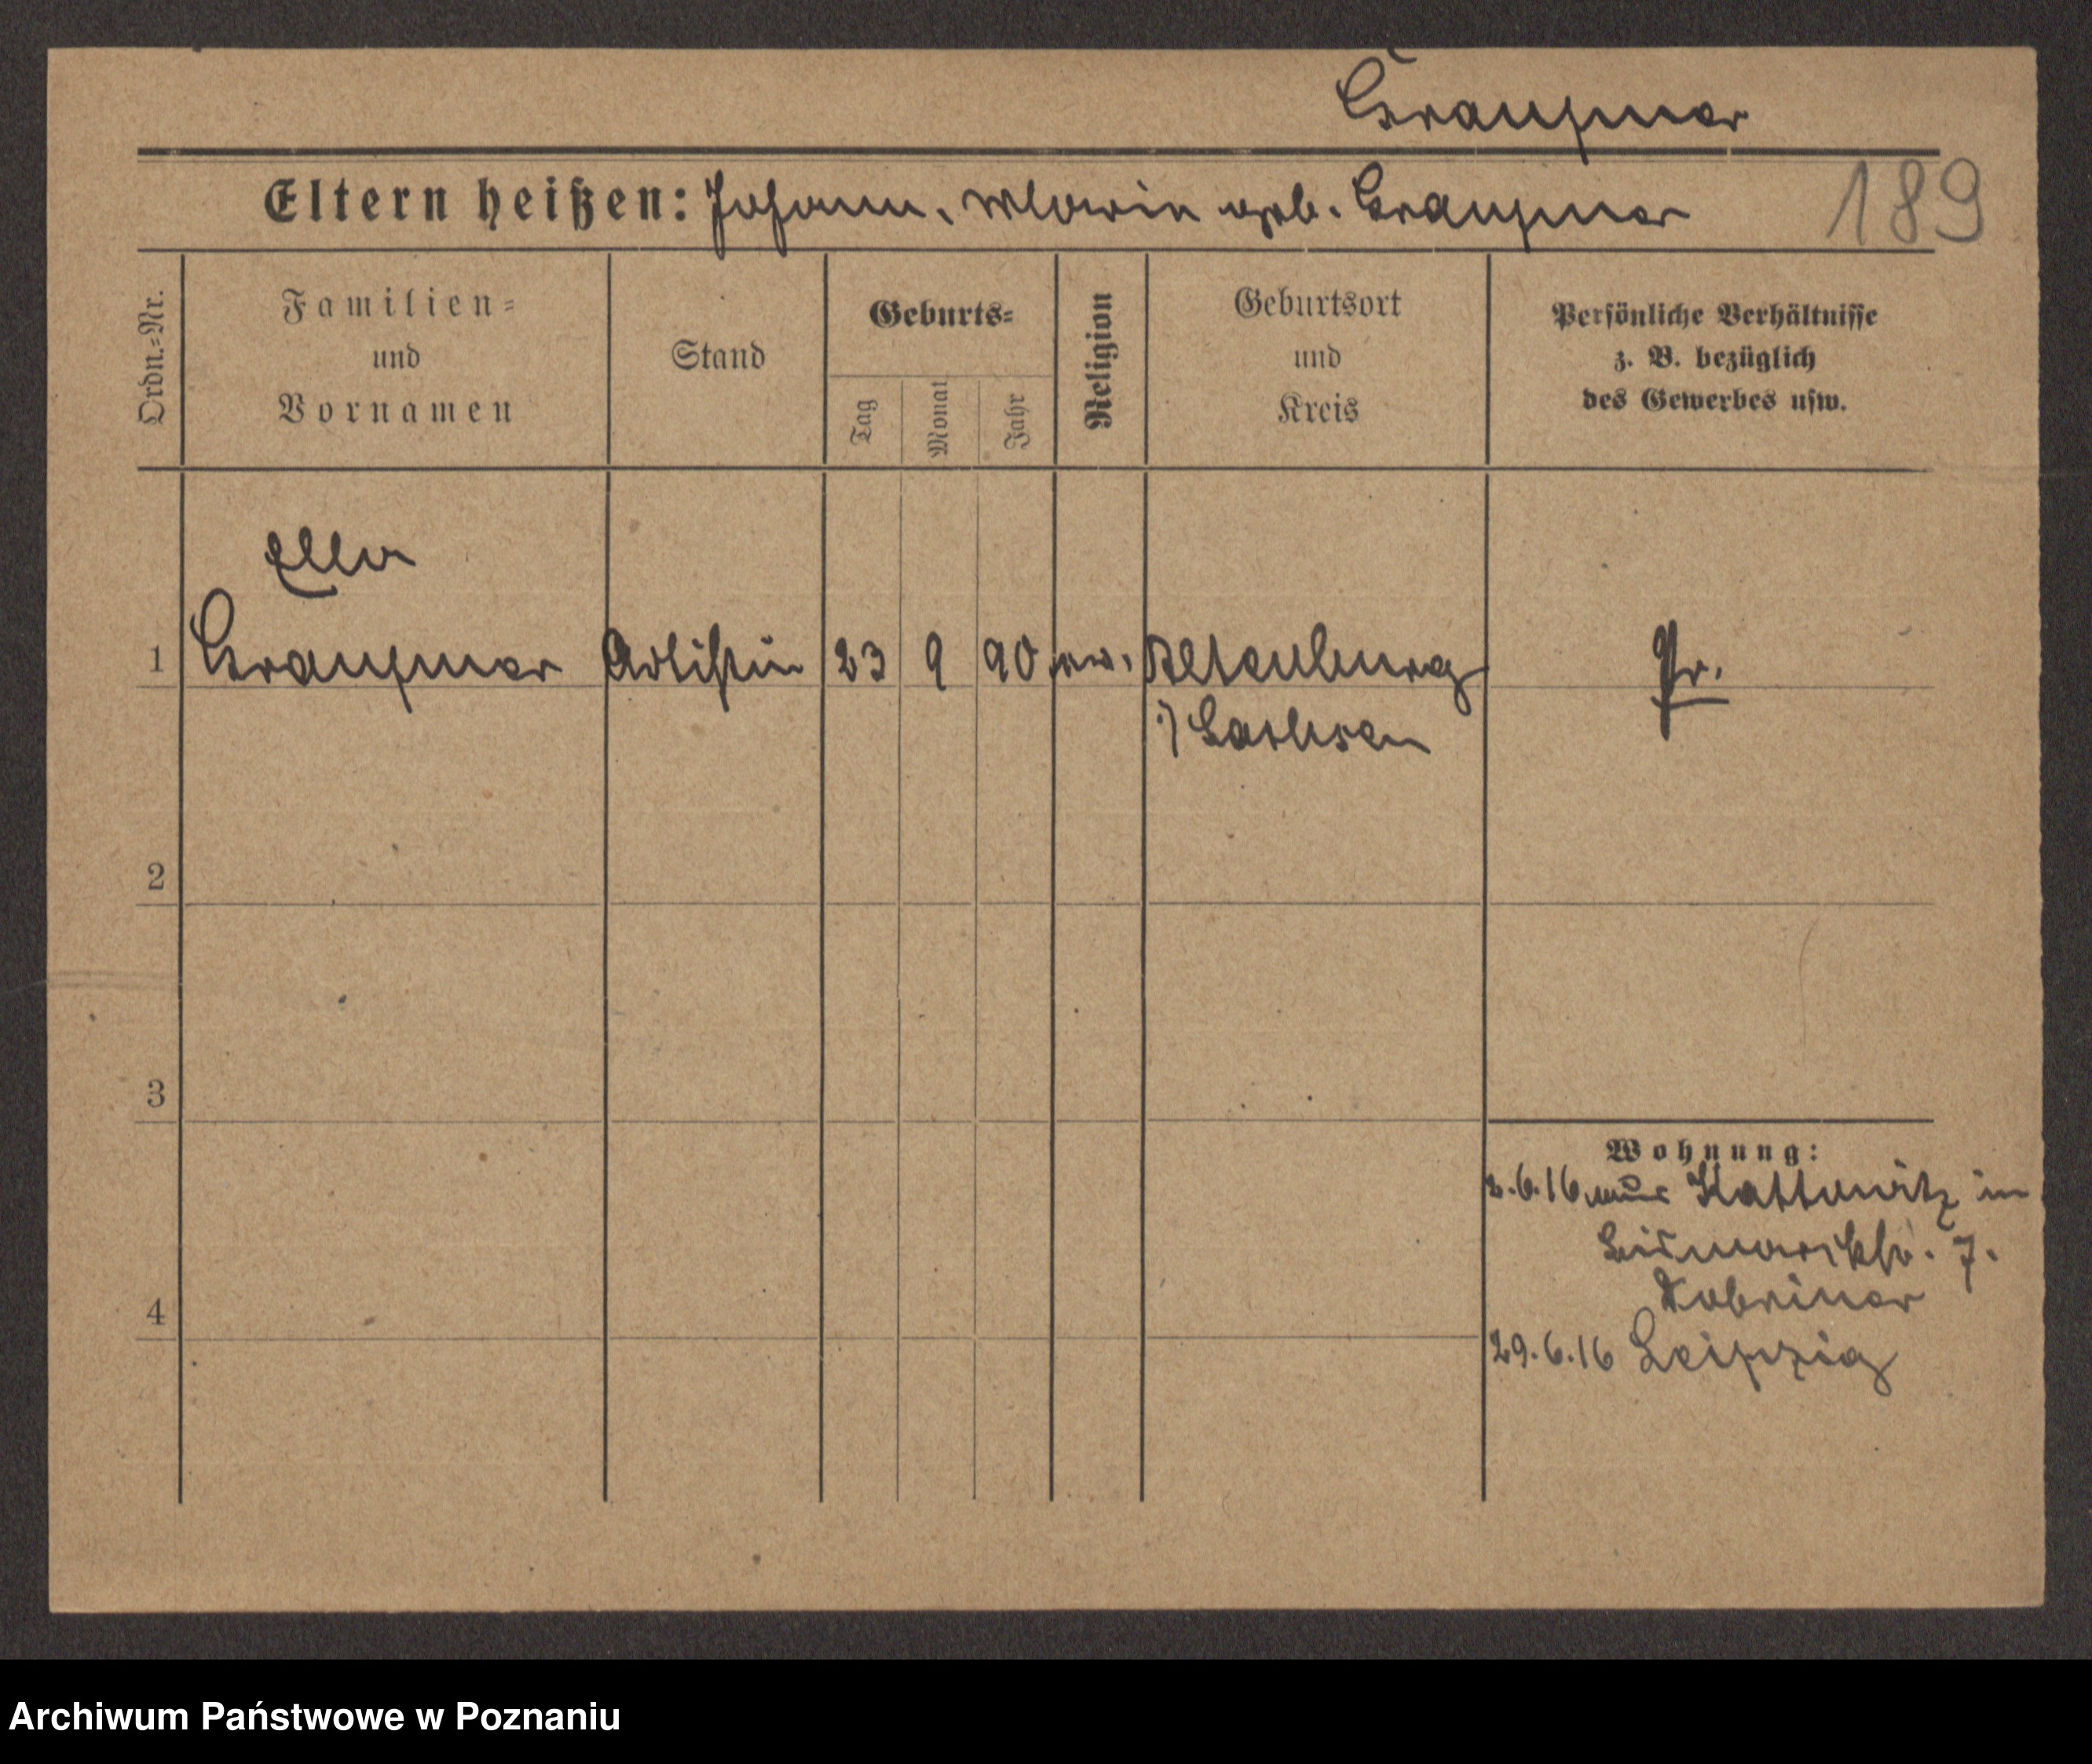 Graupner
Eltern heißen: Johann, Maria geb. Graupner
189
Ordn.=Nr.
Familien=
und
Vornamen
Stand
Geburts=
Tag
Monat
Jahr
Religion
Geburtsort
und
Kreis
Persönliche Verhältnisse
z. B. bezüglich
des Gewerbes usw.
Ella
1 Graupner Artistin 23 9 90 ev. Altenburg Pr.
i/ Sachsen
2
3
Wohnung:
2.6.16 aus Kattowitz in
Bismarckstr. 7.
Kobriner
4
29.6.16 Leipzig
Archiwum Państwowe w Poznaniu